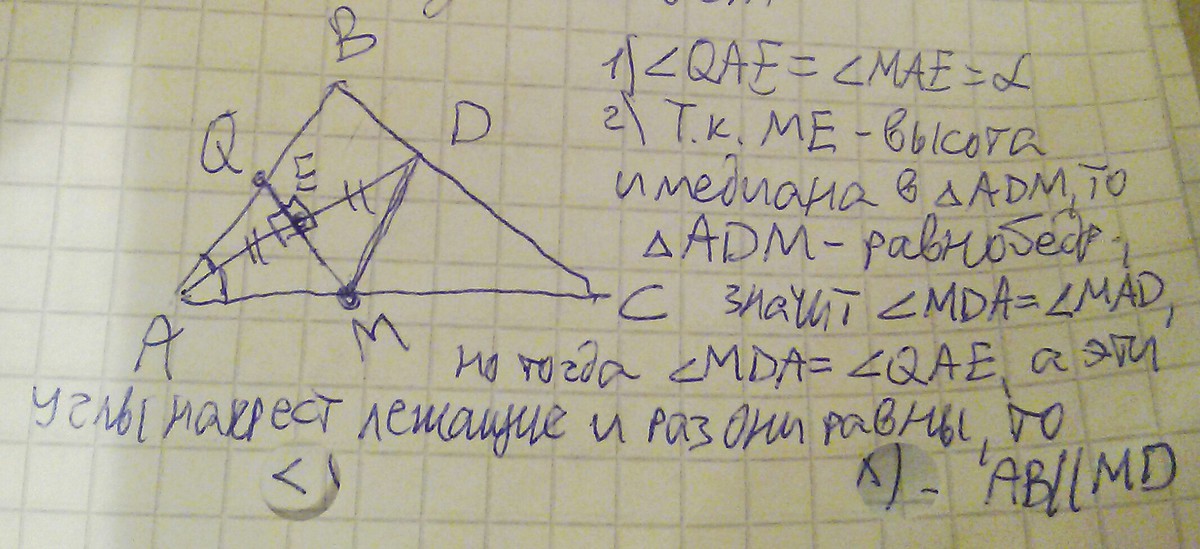 B
D
Q
E
A
M
C
1) ∠QAE = ∠MAE = α
2) Т.к. ME - высота
и медиана в △ADM, то
△ADM - равнобедр.,
значит ∠MDA = ∠MAD,
но тогда ∠MDA = ∠QAE, а эти
углы накрест лежащие и раз они равны, то
AB || MD